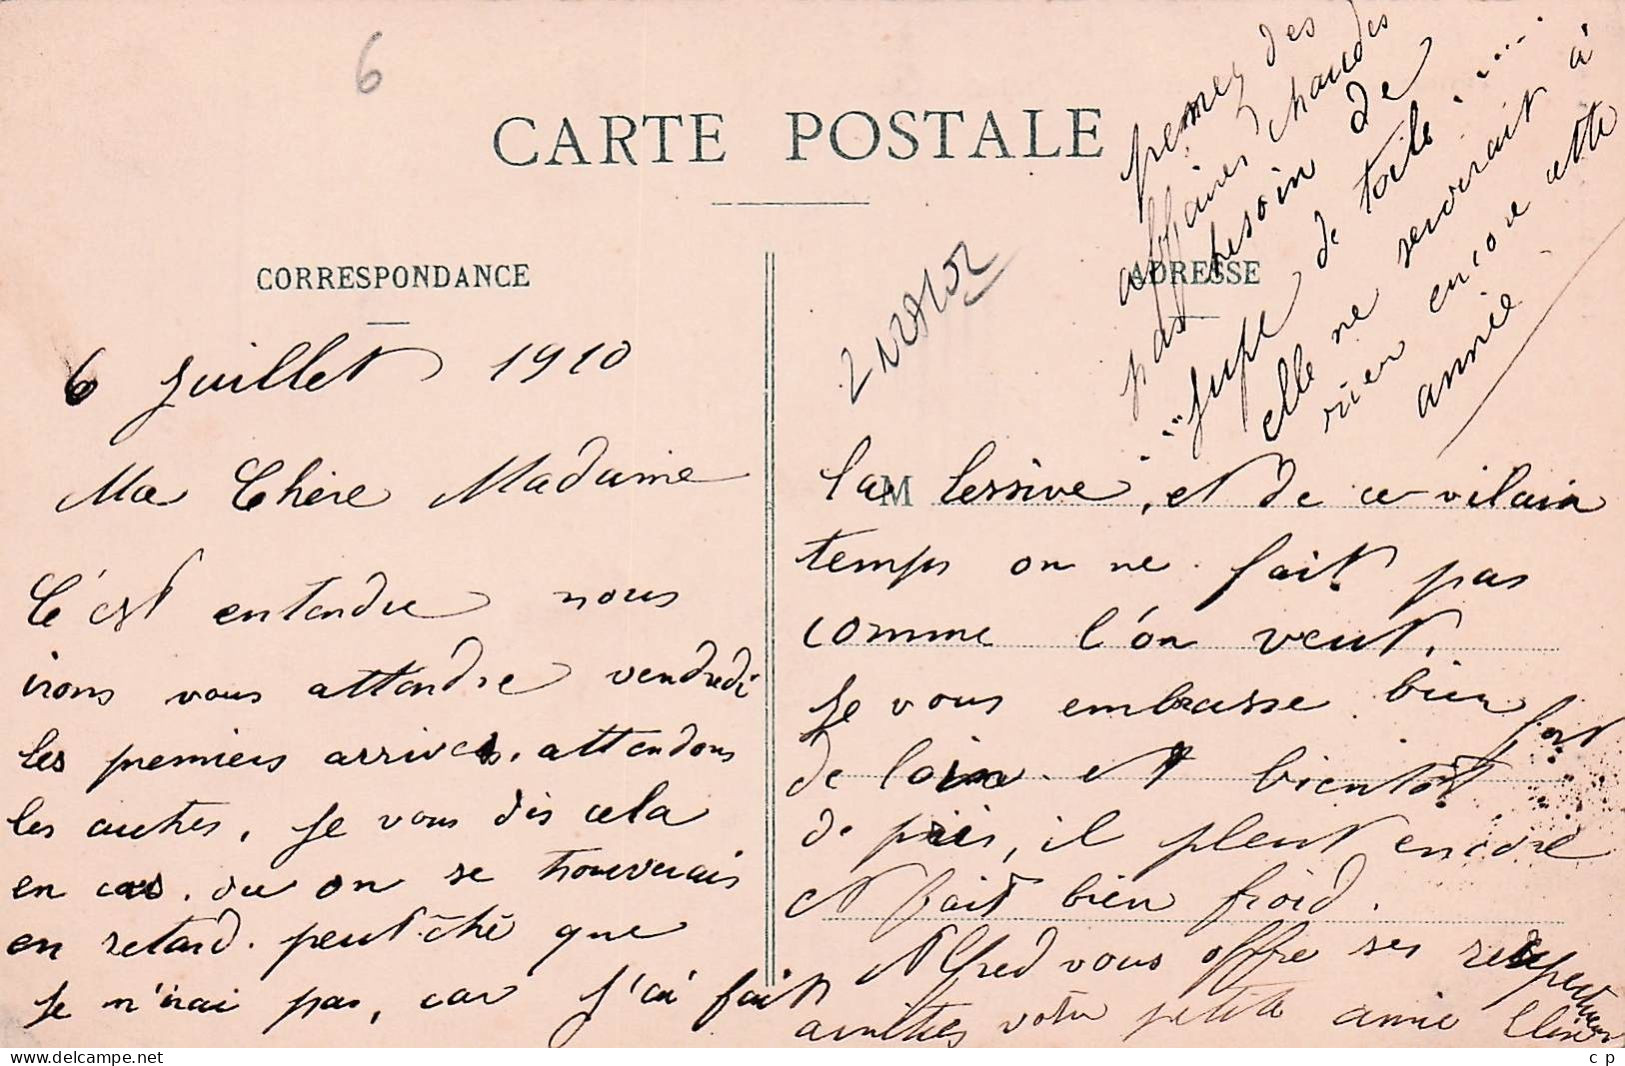 6
CARTE POSTALE
CORRESPONDANCE
ADRESSE
6 Juillet 1910
Ma Chère Madame
C'est entendu nous
irons vous attendre vendredi
les premiers arrivés. attendons
les autres, Je vous dis cela
en cas. ou on se trouverais
en retard. peut-être que
Je n'irai pas, car j'ai fait
M
la lessive, et de ce vilain
temps on ne fait pas
comme l'on veut.
Je vous embrasse bien fort
de loin et bientôt
de près, il pleut encore
et fait bien froid.
Alfred vous offre ses respectueuses
amitiés votre petite amie
prenez des
affaires chaudes
pas besoin de
"jupe de toile"
elle ne servirait à
rien encore cette
année